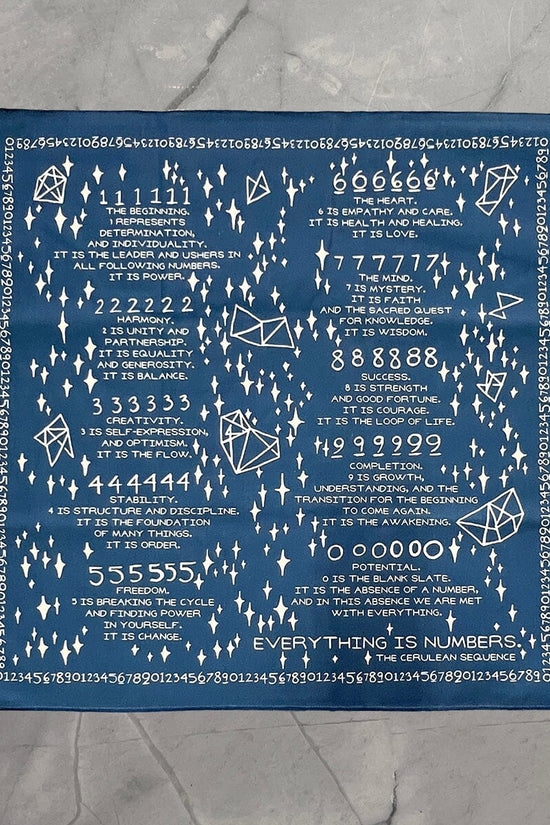 0123456789012345678901234567890123456789012345678901234567890123456789
111111
THE BEGINNING.
1 REPRESENTS
DETERMINATION,
AND INDIVIDUALITY.
IT IS THE LEADER AND USHERS IN
ALL FOLLOWING NUMBERS.
IT IS POWER.
222222
HARMONY.
2 IS UNITY AND
PARTNERSHIP.
IT IS EQUALITY
AND GENEROSITY.
IT IS BALANCE.
333333
CREATIVITY.
3 IS SELF-EXPRESSION,
AND OPTIMISM.
IT IS THE FLOW.
444444
STABILITY.
4 IS STRUCTURE AND DISCIPLINE.
IT IS THE FOUNDATION
OF MANY THINGS.
IT IS ORDER.
555555
FREEDOM.
5 IS BREAKING THE CYCLE
AND FINDING POWER
IN YOURSELF.
IT IS CHANGE.
666666
THE HEART.
6 IS EMPATHY AND CARE.
IT IS HEALTH AND HEALING.
IT IS LOVE.
777777
THE MIND.
7 IS MYSTERY.
IT IS FAITH
AND THE SACRED QUEST
FOR KNOWLEDGE.
IT IS WISDOM.
888888
SUCCESS.
8 IS STRENGTH
AND GOOD FORTUNE.
IT IS COURAGE.
IT IS THE LOOP OF LIFE.
999999
COMPLETION.
9 IS GROWTH,
UNDERSTANDING, AND THE
TRANSITION FOR THE BEGINNING
TO COME AGAIN.
IT IS THE AWAKENING.
000000
POTENTIAL.
0 IS THE BLANK SLATE.
IT IS THE ABSENCE OF A NUMBER,
AND IN THIS ABSENCE WE ARE MET
WITH EVERYTHING.
EVERYTHING IS NUMBERS.
THE CERULEAN SEQUENCE
0123456789012345678901234567890123456789012345678901234567890123456789